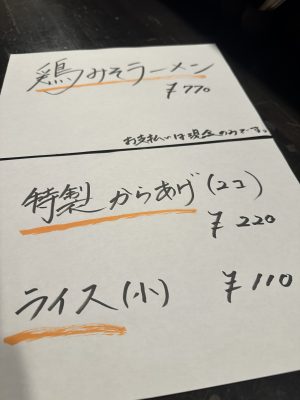 鶏みそラーメン
¥770
お支払いは現金のみです。
特製からあげ(2コ)
¥220
ライス(小) ¥110